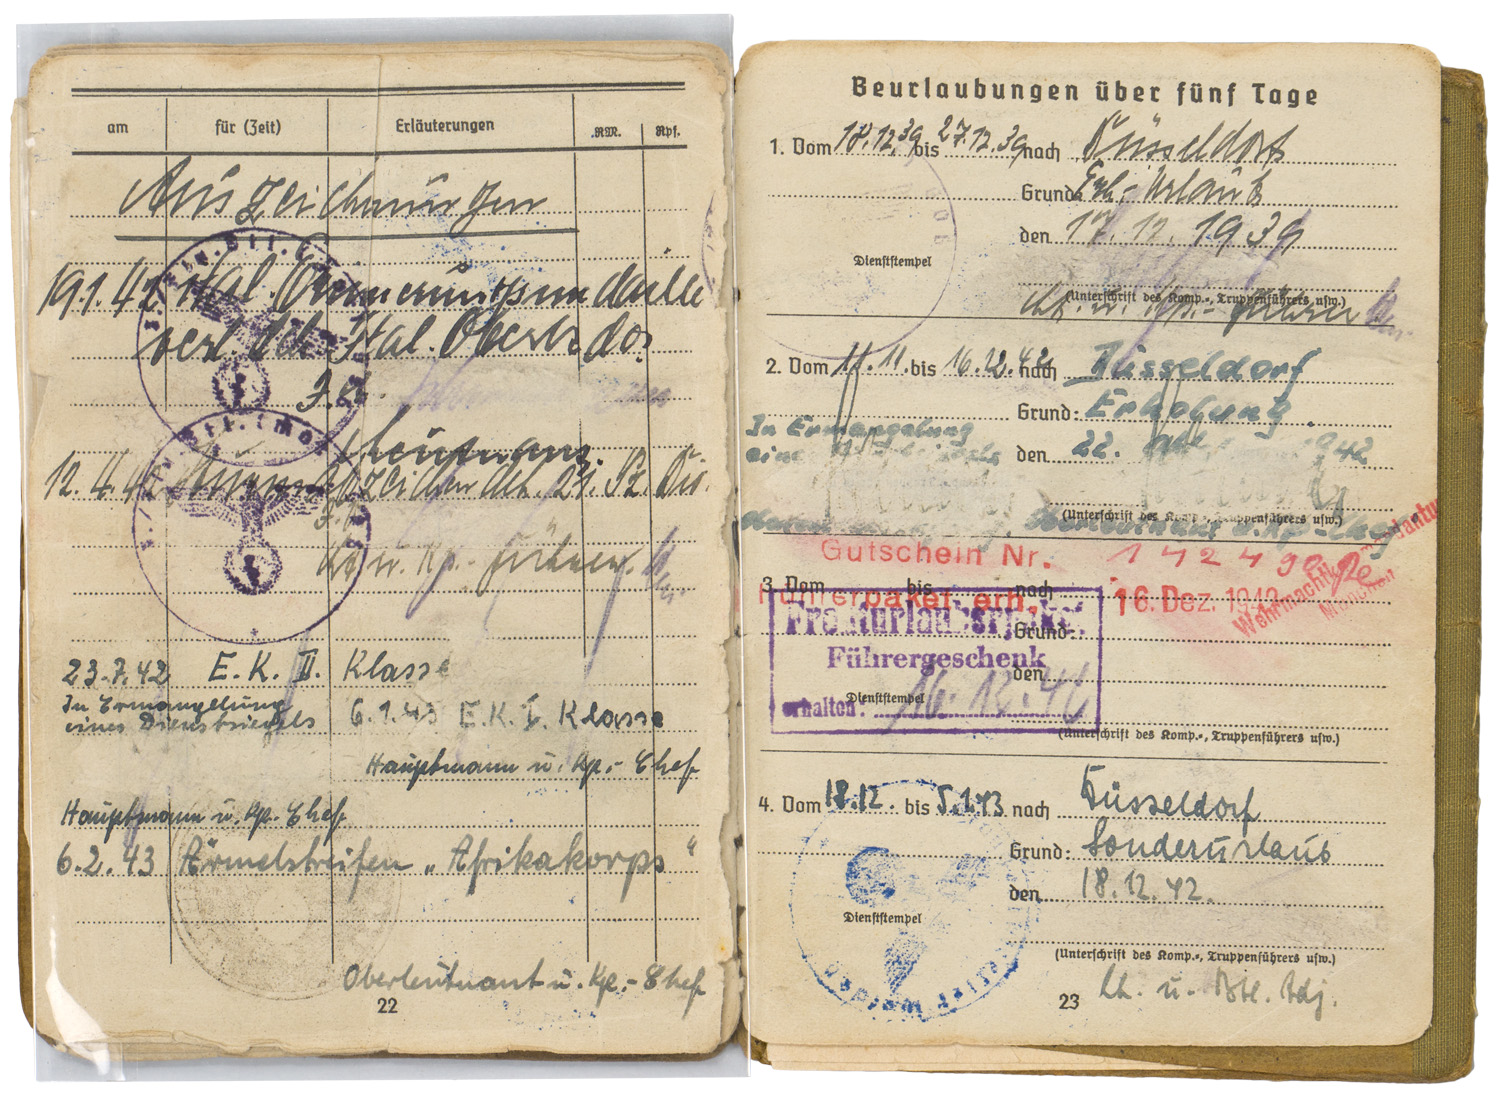 am für (Zeit) Erläuterungen RM. Rpf.
Auszeichnungen
19.1.42 Ital. Erinnerungsmedaille
verl. dch. Ital. Oberkdo.
Leutnant
12.4.42 dch. 21. Pz. Div.
Lt. u. Kp.-Führer.
23.7.42 E.K. II. Klasse
In Ermangelung
eines Dienstsiegels 6.1.43 E.K. I. Klasse
Hauptmann u. Kp.-Chef
Hauptmann u. Kp. Chef
6.2.43 Ärmelstreifen „Afrikakorps“
Oberleutnant u. Kp.-Chef
22
Beurlaubungen über fünf Tage
1. Vom 18.12.39 bis 27.12.39 nach Düsseldorf
Grund: Erh.-Urlaub
den 17.12.1939
Dienststempel
(Unterschrift des Komp.-, Truppenführers usw.)
Lt. u. Kp.-Führer
2. Vom 11.11. bis 16.12.42 nach Düsseldorf
Grund: Erholung
In Ermangelung
den 22. 1942
(Unterschrift des Komp.-, Truppenführers usw.)
Oberleutnant u. Kp.-Chef
Gutschein Nr. 142490
3. Vom bis nach
Führerpaket erh. 16. Dez. 1942
Wehrmacht
München
Fronturlauberpaket
Grund:
Führergeschenk
den
Dienststempel
erhalten: 16.12.42
(Unterschrift des Komp.-, Truppenführers usw.)
4. Vom 18.12. bis 5.1.43 nach Düsseldorf
Grund: Sonderurlaub
den 18.12.42.
Dienststempel
(Unterschrift des Komp.-, Truppenführers usw.)
Lt. u. Btl. Adj.
23